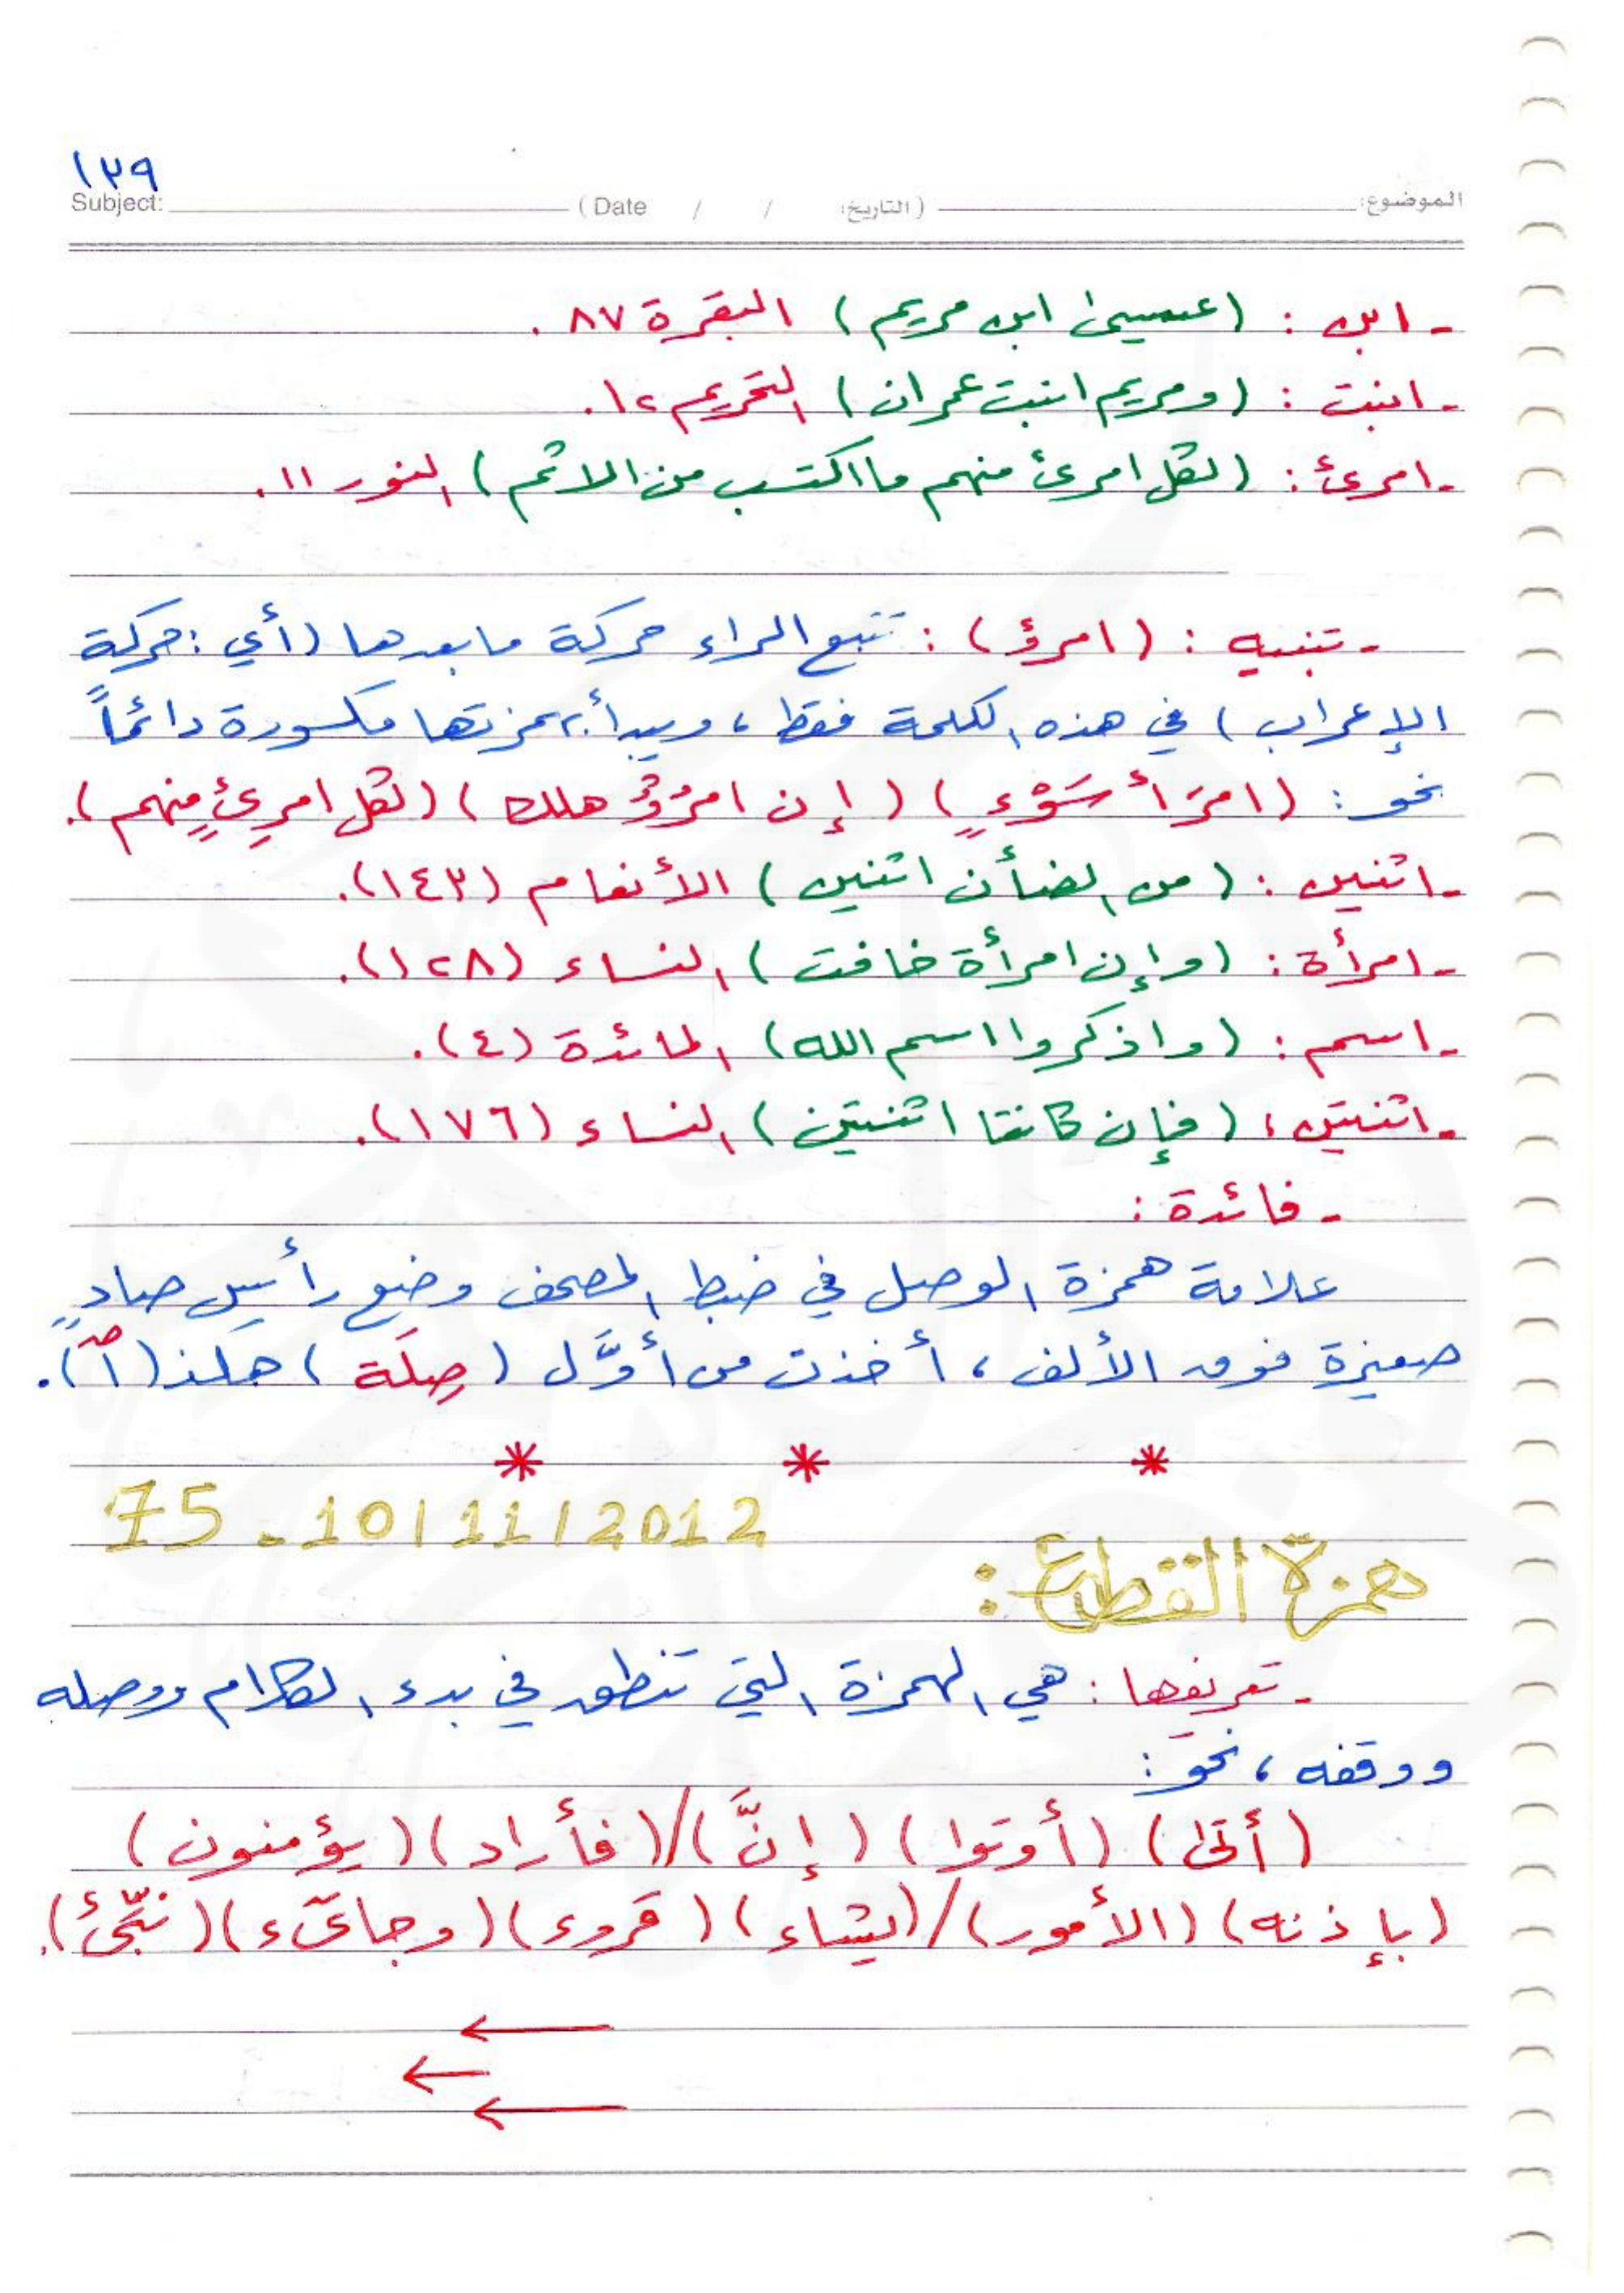 ١٣٩
Subject: (Date / / التاريخ:) الموضوع:
- ابن : (عيسى ابن مريم) البقرة ٨٧ .
- ابنت : (ومريم ابنت عمران) التحريم ١٢.
- امرئ : (لكل امرئ منهم ما اكتسب من الاثم) النور ١١.
- تنبيه : (امرؤ) : تتبع الراء حركة ما بعدها (أي : حركة
الإعراب) في هذه الكلمة فقط ، ويبدأ بهمزتها مكسورة دائماً
نحو : (امرَأَ سَوْءٍ) (إن امرُؤٌ هلك) (لكل امرِئٍ منهم).
- اثنين : (من الضأن اثنين) الأنعام (١٤٣).
- امرأة : (وإن امرأة خافت) النساء (١٢٨).
- اسم : (واذكروا اسم الله) المائدة (٤).
- اثنتين : (فإن كانتا اثنتين) النساء (١٧٦).
- فائدة :
علامة همزة الوصل في ضبط المصحف وضع رأس صادٍ
صغيرة فوق الألف ، أخذت من أوَّل (صِلَة) هكذا (ٱ).
* * *
75 - 10/11/2012
همزة القطع :
- تعريفها : هي الهمزة التي تنطق في بدء الكلام ووصله
ووقفه ، نحو :
(أتى) (أوتوا) (إنَّ) / (فأراد) (يؤمنون)
(بإذنه) (الأمور) / (يشاء) (قروء) (وجاىٓء) (نبِّئْ).